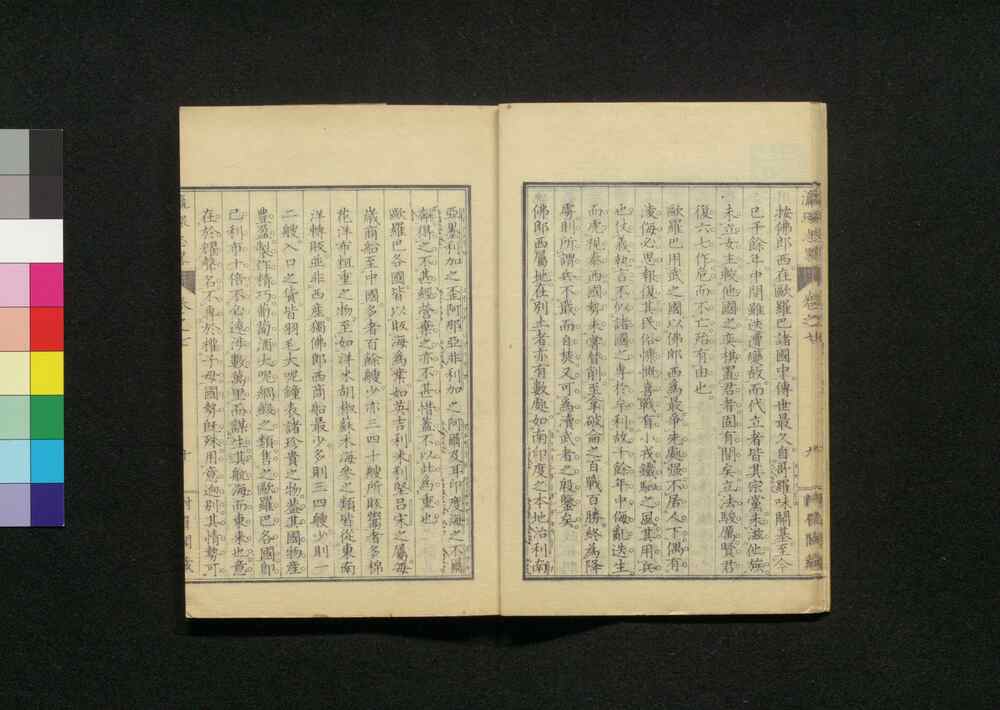 按佛郎西在歐羅巴諸國中傳世最久自哥羅味開基至今
已千餘年中間雖迭遭變故而代立者皆其宗黨未滋他族
未立女主較他國之奕棋置君者固有間矣立法駿厲賢君
復六七作危而不亡殆有由也
歐羅巴用武之國以佛郎西為最爭先處强不居人下偶有
凌侮必思報復其民俗慓悍喜戰有小戎鐵駟之風其用兵
也仗義執言不似諸國之專於牟利故千餘年中侮亂迭生
而虎視泰西國勢未嘗替削至拿破侖之百戰百勝終為降
虜則所謂兵不戢而自焚又可為黷武者之殷鑒矣
佛郎西屬地在別土者亦有數處如南印度之本地治利南
亞墨利加之歪阿那亞非利加之阿爾及耳印度海之不爾
奔得之不甚經營棄之亦不甚惜蓋不以此為重也
歐羅巴各國皆以販海為業如英吉利米利堅呂宋之屬每
歲商船至中國多者百餘艘少亦三四十艘所販鬻者多棉
花洋布粗重之物至如洋米胡椒蘇木海參之類皆從東南
洋轉販並非西產獨佛郎西商船最少多則三四艘少則一
二艘入口之貨皆羽毛大呢鐘表諸珍貴之物蓋其國物產
豐盈製作精巧葡萄酒大呢綢緞之類售之歐羅巴各國即
已利市十倍不必遠涉數萬里而謀生其航海而東來也意
在於耀聲名不專於權子母國勢旣殊用意逈別其情勢可
卷之七